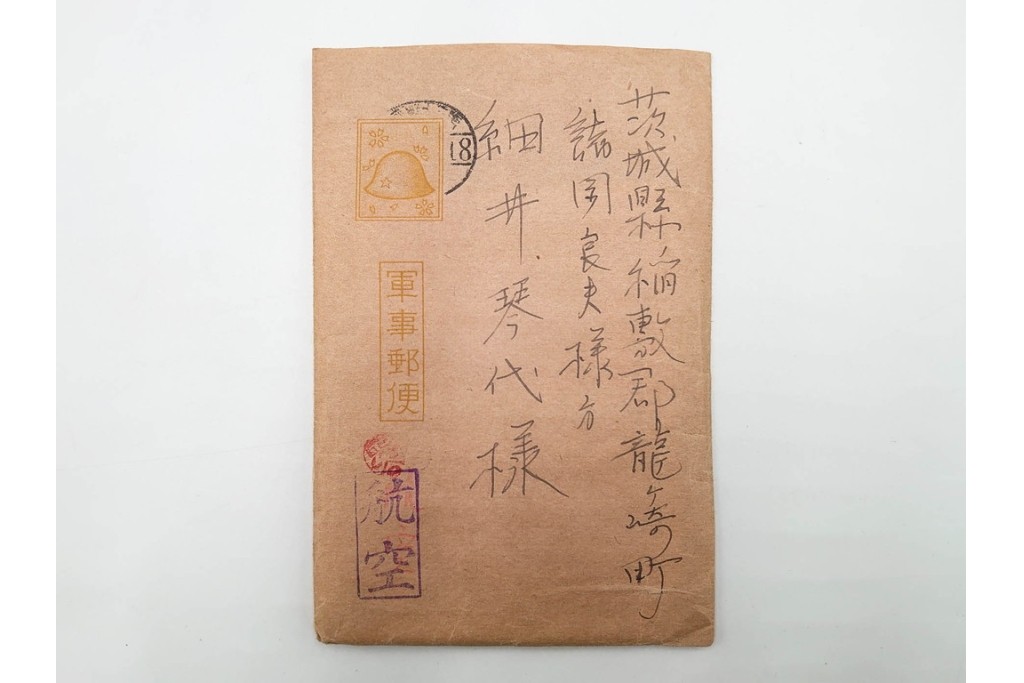 茨城縣稲敷郡龍ヶ崎町
諸岡良夫様方
細井琴代様
18
軍事郵便
航空